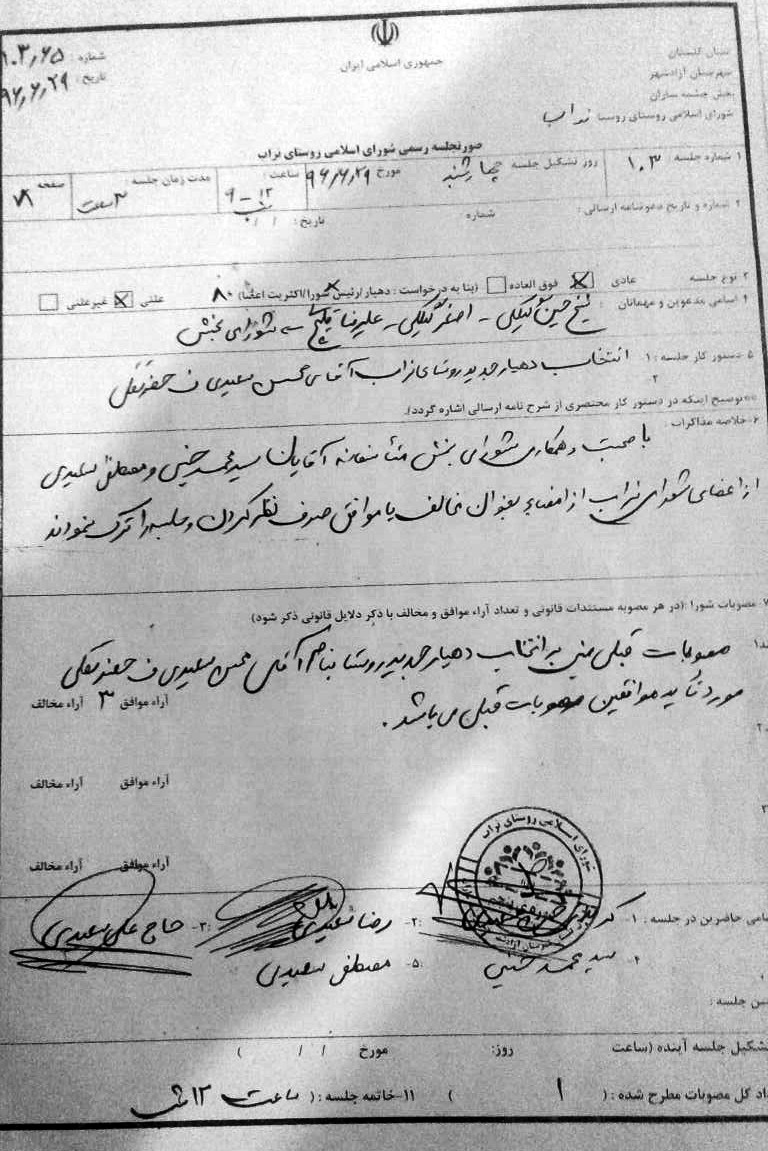 جمهوری اسلامی ایران
استان گلستان
شهرستان آزادشهر
بخش چشمه ساران
شورای اسلامی روستای روستا نراب
شماره : ۱۰۳/۶۵
تاریخ : ۹۶/۶/۲۹
صورتجلسه رسمی شورای اسلامی روستای نراب
۱ شماره جلسه : ۱۰۳ روز تشکیل جلسه چهارشنبه مورخ ۹۶/۶/۲۹ ساعت : ۹ - ۱۲ شب مدت زمان جلسه : ۳ ساعت صفحه ۷۸
۲ شماره و تاریخ دعوتنامه ارسالی : شماره تاریخ : / /
۳ نوع جلسه عادی فوق العاده (بنا به درخواست : دهیار/رئیس شورا/اکثریت اعضا) ۸۰ علنی غیرعلنی
۴ اسامی مدعوین و مهمانان : شیخ حسین - اصغر - علیرضا شورای بخش
۵ دستور کار جلسه : ۱ انتخاب دهیار جدید روستای نراب آقای محسن سعیدی ف جعفرنقلی
۲
**توضیح اینکه در دستور کار مختصری از شرح نامه ارسالی اشاره گردد).
۶-خلاصه مذاکرات :
با صحبت و همکاری شورای بخش متأسفانه آقایان سید محمد حسینی و مصطفی سعیدی
از اعضای شورای نراب از امضاء بعنوان مخالف یا موافق صرف نظر کردن و جلسه را ترک نمودند
۷ مصوبات شورا : (در هر مصوبه مستندات قانونی و تعداد آراء موافق و مخالف با ذکر دلایل قانونی ذکر شود)
مصوبات قبلی مبنی بر انتخاب دهیار جدید روستا بنام آقای محسن سعیدی ف جعفرنقلی
مورد تأیید موافقین مصوبات قبلی می باشد .
آراء موافق ۳ آراء مخالف
آراء موافق آراء مخالف
آراء موافق آراء مخالف
شورای اسلامی روستای نراب
اسامی حاضرین در جلسه : ۱- ۲- رضا سعیدی ۳- حاج علی سعیدی
۴- سید محمد حسینی ۵- مصطفی سعیدی
جلسه :
تشکیل جلسه آینده (ساعت روز: مورخ / / )
تعداد کل مصوبات مطرح شده : ( ۱ ) ۱۱-خاتمه جلسه : ( ساعت ۱۲ شب